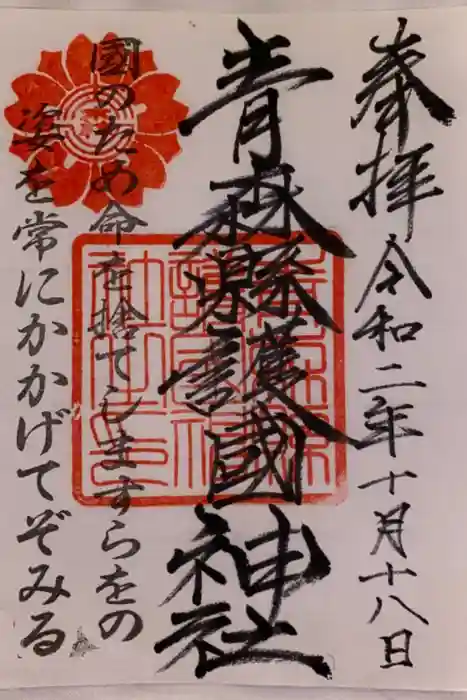 奉拝 令和二年十月十八日
青森縣護國神社
國のため命を捨てしますらをの
姿を常にかかげてぞみる